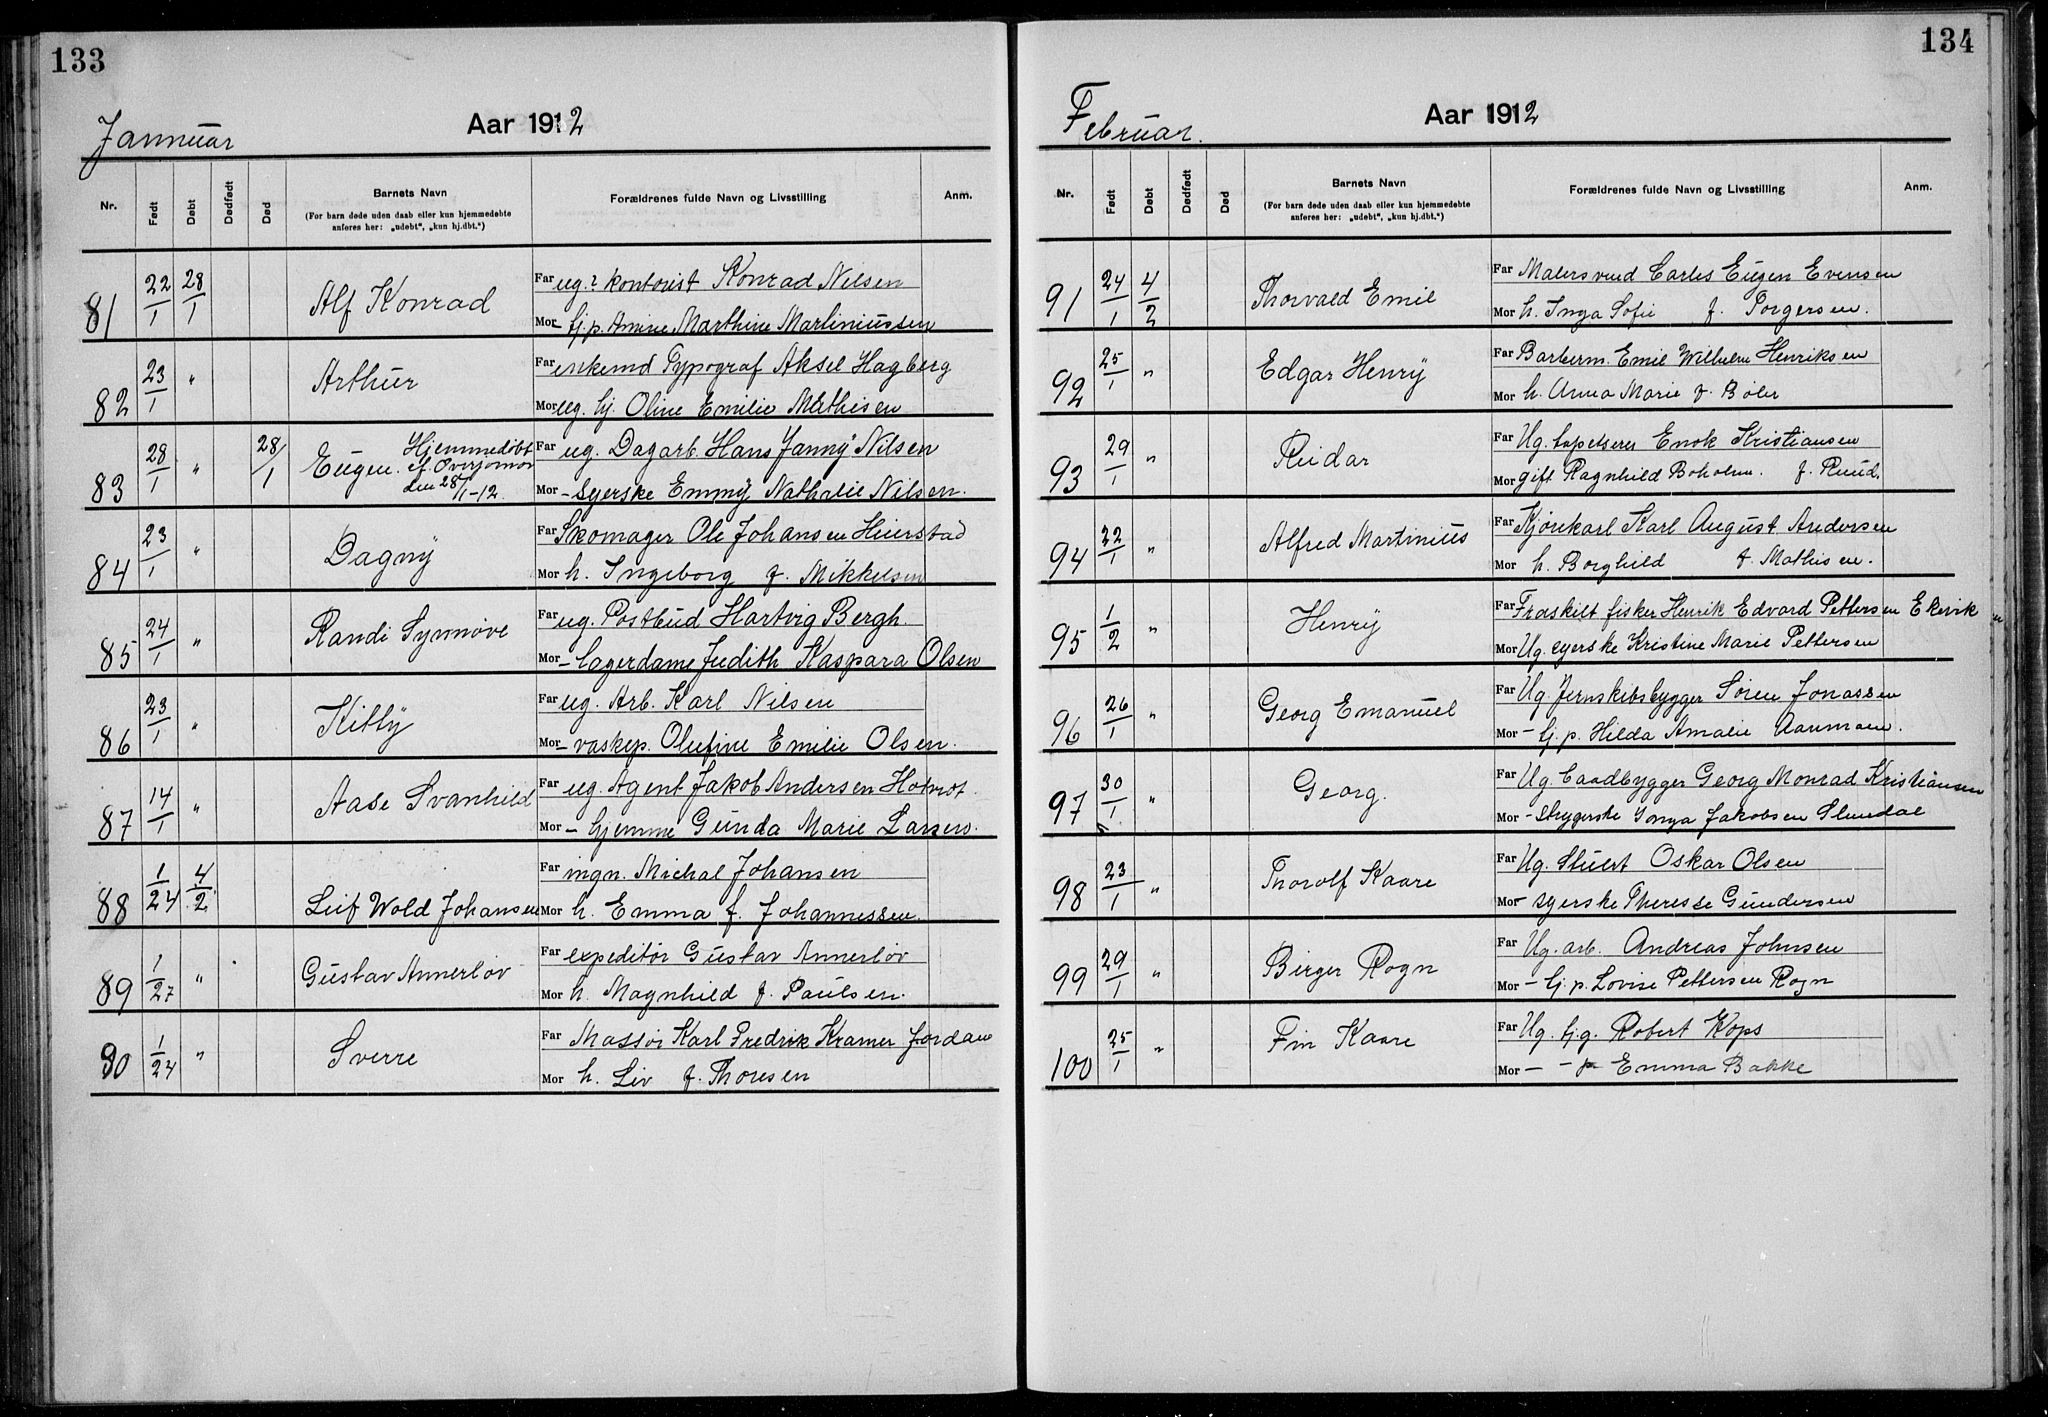 133
Januuar
Aar 1912
Nr. Født Døbt Dødfødt Død Barnets Navn Forældrenes fulde Navn og Livsstilling Anm.
(For barn døde uden daab eller kun hjemmedøbte
anføres her: „udøbt“, „kun hj.dbt.“)
81 22/1 28/1 Alf Konrad Far ug.? kontorist Konrad Nilsen
Mor – tj.p. Amine Marthine Martiniussen
82 23/1 " Arthur Far enkemd Typograf Aksel Hagberg
Mor ug. hj. Oline Emilie Mathisen
83 28/1 " 28/1 Eugen. Hjemmedøbt af Overjomor den 28/1-12. Far ug. Dagarb. Hans Janny Nilsen
Mor – Syerske Emmy Nathalie Nilsen.
84 23/1 " Dagny Far Skomager Ole Johansen Hierstad
Mor h. Ingeborg f. Mikkelsen
85 24/1 " Randi Synnøve Far ug. Postbud Hartvig Bergh.
Mor – lagerdame Judith Kaspara Olsen
86 23/1 " Kitty Far ug. Arb. Karl Nilsen
Mor – vaskep. Olufine Emilie Olsen.
87 14/1 " Aase Svanhild Far ug. Agent Jakob Andersen
Mor – hjemme Gunda Marie Larsen.
88 1/24 4/2 Leif Wold Johansen Far ingn. Michal Johansen
Mor h. Emma f. Johannessen.
89 1/27 " Gustav Annerløv Far expeditør Gustav Annerløv
Mor h. Magnhild f. Paulsen.
90 1/24 " Sverre Far Massør Karl Fredrik Kramer Jordan
Mor h. Liv f. Thoresen
134
Februar.
Aar 1912
Nr. Født Døbt Dødfødt Død Barnets Navn Forældrenes fulde Navn og Livsstilling Anm.
(For barn døde uden daab eller kun hjemmedøbte
anføres her: „udøbt“, „kun hj.dbt.“)
91 24/1 4/2 Thorvald Emil Far Malersvend Carles Eugen Evensen
Mor h. Inga Sofie f. Torgersen.
92 25/1 " Edgar Henry Far Barberm. Emil Wilhelm Henriksen
Mor h. Anna Marie f. Bøler
93 29/1 " Reidar Far Ug. tapetserer Enok Kristiansen
Mor gift Ragnhild Boholm. f. Ruud.
94 22/1 " Alfred Martinius Far Kjørekarl Karl August Andersen
Mor h. Borghild f. Mathisen.
95 1/2 " Henry Far Fraskilt fisker Henrik Edvard Pettersen Ekevik
Mor Ug. syerske Kristine Marie Pettersen
96 26/1 " Georg Emanuel Far Ug. Jernskibsbygger Søren Jonassen
Mor – tj.p. Hilda Amalie
97 30/1 " Georg. Far Ug. baadbygger Georg Monrad Kristiansen
Mor – Strygerske Sonja Jakobsen
98 23/1 " Thorolf Kaare Far Ug. Stuert Oskar Olsen
Mor – syerske Therese Gundersen
99 29/1 " Birger Rogn Far Ug. arb. Andreas Johnsen
Mor – tj.p. Lovise Pettersen Rogn
100 25/1 " Fin Kaare Far Ug. tj.g. Robert Kops
Mor – – p Emma Bakke